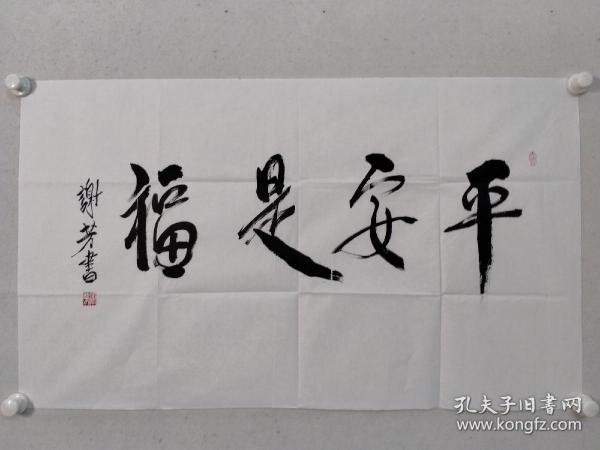 平安是福
謝芳書
孔夫子旧書网
www.kongfz.com